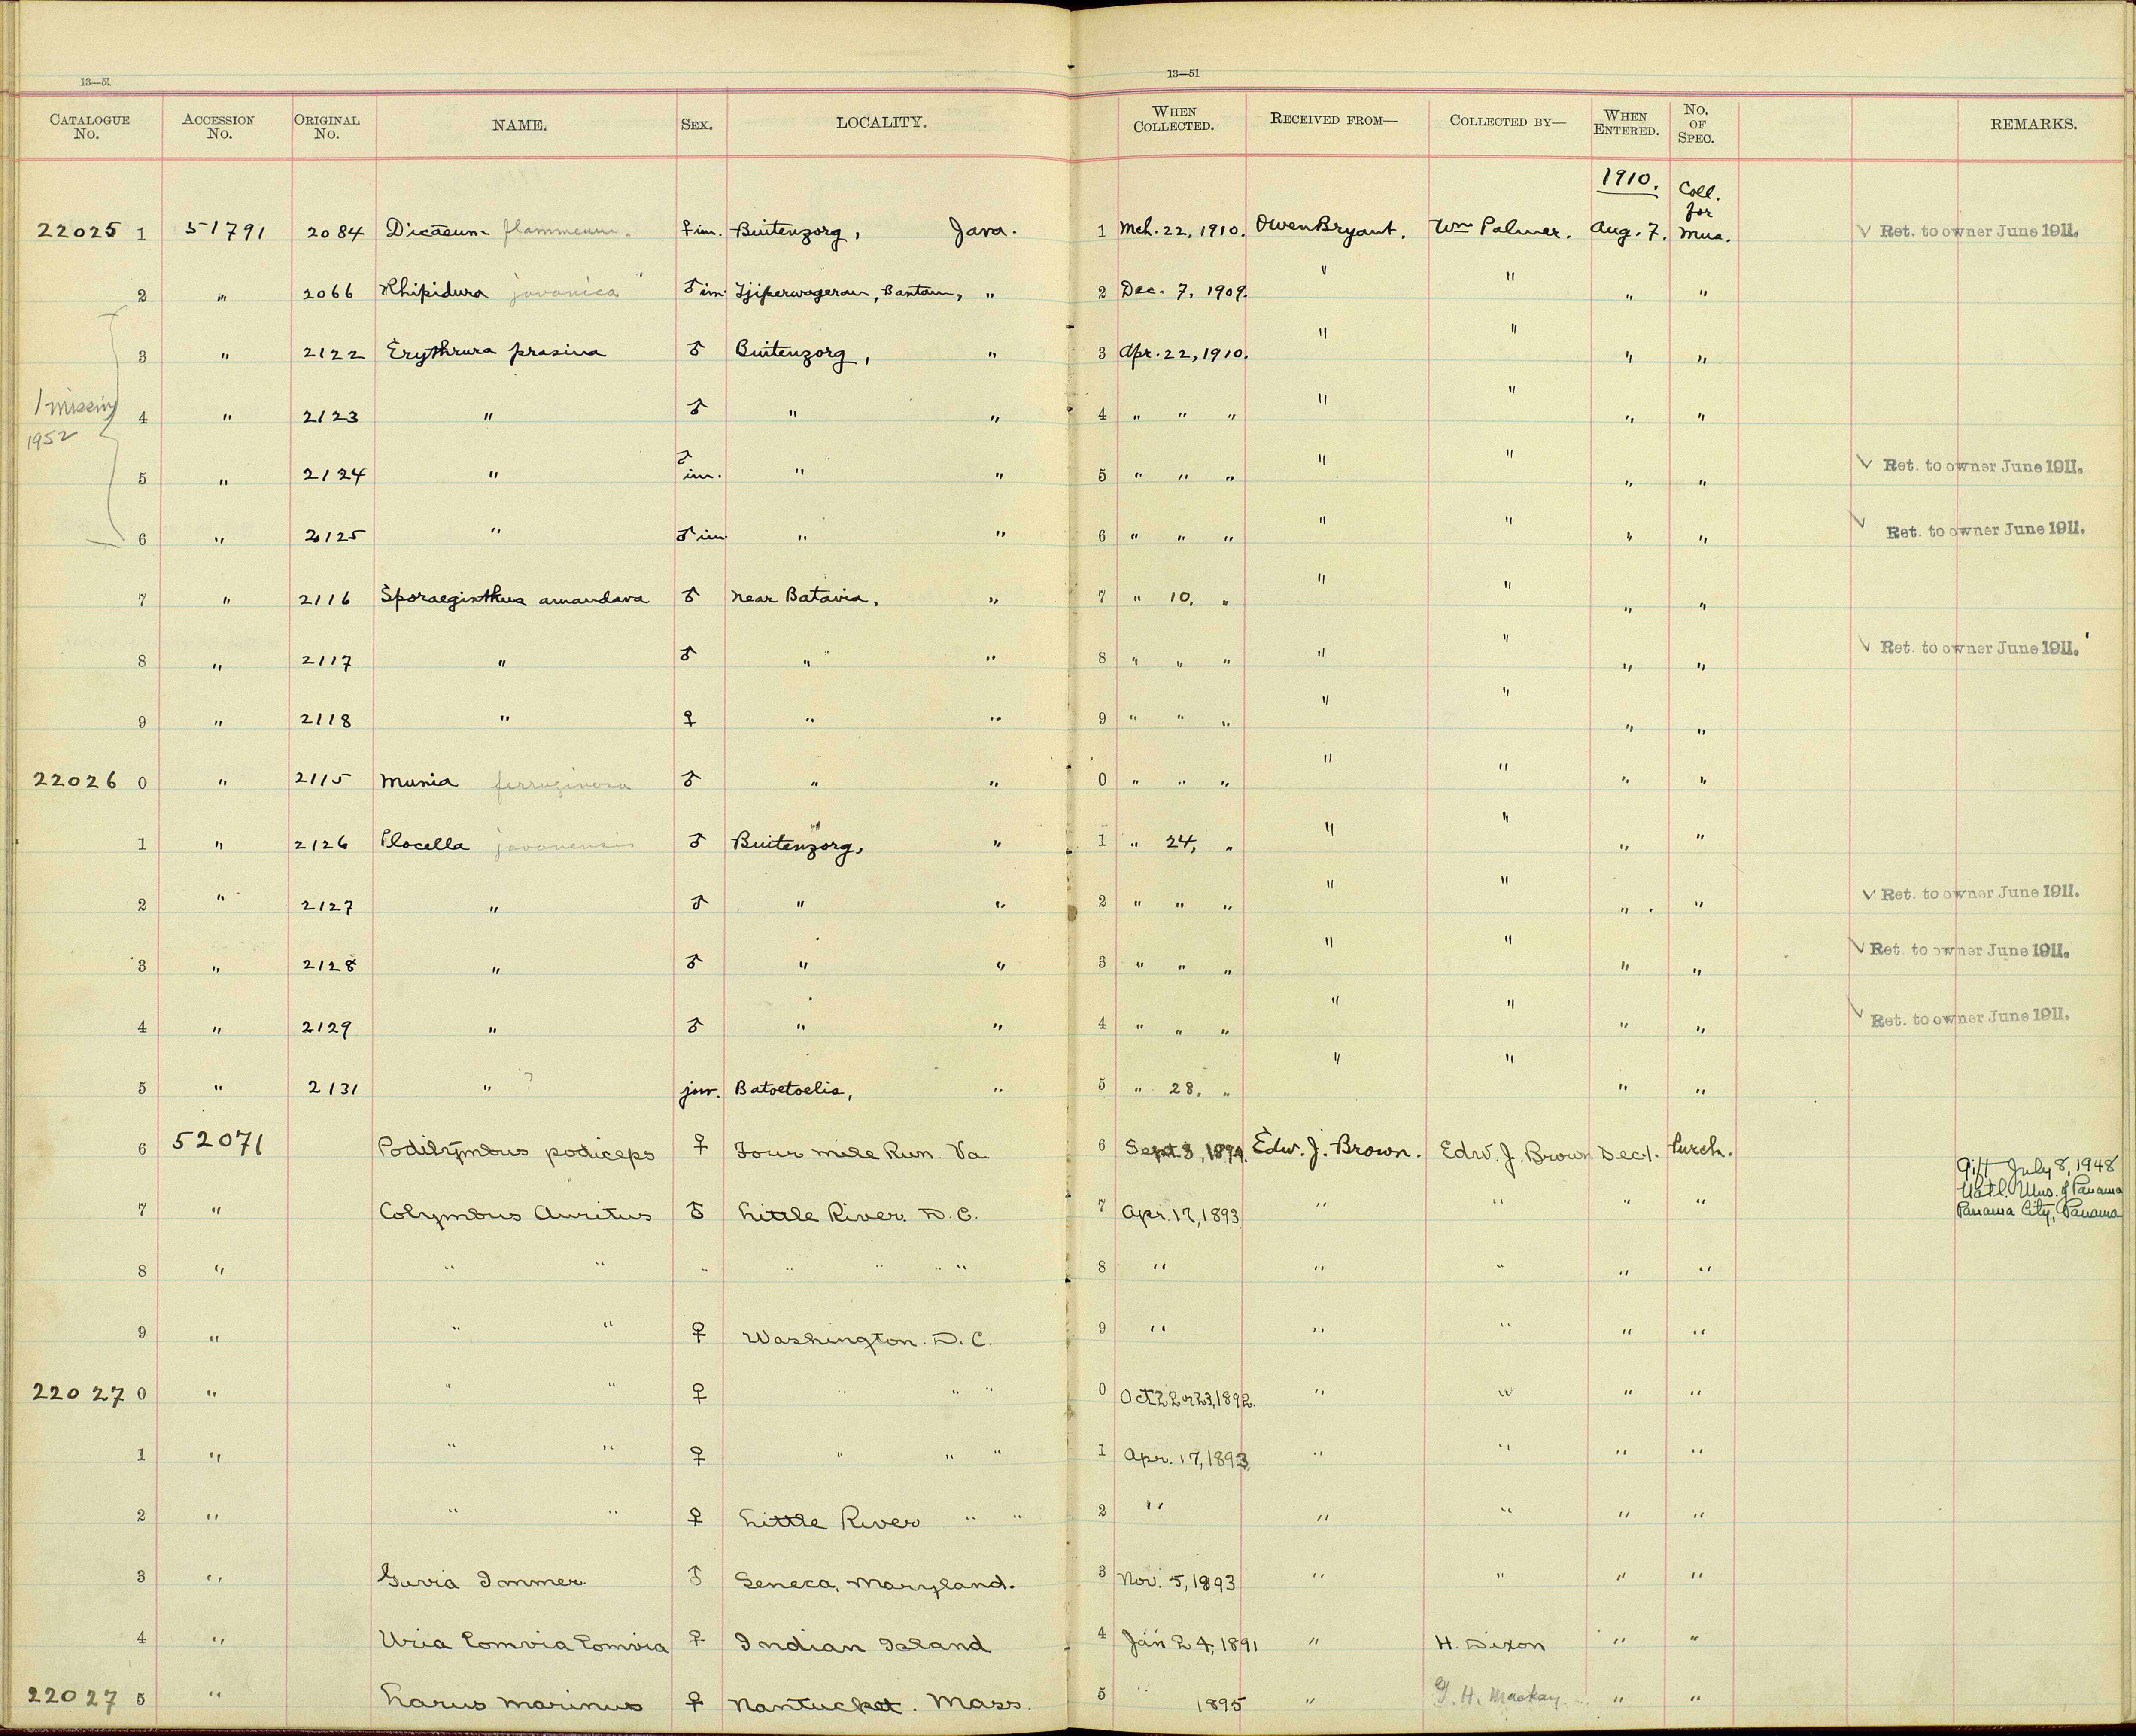 13—51 13—51
CATALOGUE No. ACCESSION No. ORIGINAL No. NAME. SEX. LOCALITY. WHEN COLLECTED. RECEIVED FROM— COLLECTED BY— WHEN ENTERED. No. OF SPEC. REMARKS.
1910. Coll. for
22025 1 51791 2084 Dicaeum flammeum. ♀ im. Buitenzorg, Java. 1 Mch. 22, 1910. Owen Bryant. Wm Palmer. Aug. 7. Mus. √ Ret. to owner June 1911.
2 " 2066 Rhipidura javanica ♂ im. Bantam, " 2 Dec. 7, 1909. " " " "
3 " 2122 Erythrura prasina ♂ Buitenzorg, " 3 Apr. 22, 1910. " " " "
1 missing 1952
4 " 2123 " ♂ " " 4 " " " " " " "
5 " 2124 " ♂ im. " " 5 " " " " " " " √ Ret. to owner June 1911.
6 " 2125 " ♂ im " " 6 " " " " " " " √ Ret. to owner June 1911.
7 " 2116 Sporaeginthus amandava ♂ Near Batavia, " 7 " 10, " " " " "
8 " 2117 " ♂ " " 8 " " " " " " " √ Ret. to owner June 1911.
9 " 2118 " ♀ " " 9 " " " " " " "
22026 0 " 2115 Munia ferruginosa ♂ " " 0 " " " " " " "
1 " 2126 Ploceella javanensis ♂ Buitenzorg, " 1 " 24, " " " " "
2 " 2127 " ♂ " " 2 " " " " " " " √ Ret. to owner June 1911.
3 " 2128 " ♂ " " 3 " " " " " " " √ Ret. to owner June 1911.
4 " 2129 " ♂ " " 4 " " " " " " " √ Ret. to owner June 1911.
5 " 2131 " ? juv. Batoetoelis, " 5 " 28, " " " " "
6 52071 Podilymbus podiceps ♀ Four mile Run. Va 6 Sept 3, 1894. Edw. J. Brown. Edw. J. Brown Dec 1. Purch.
Gift July 8, 1948
Natl. Mus. of Panama
Panama City, Panama
7 " Colymbus Auritus ♂ Little River. D. C. 7 Apr. 17, 1893 " " " "
8 " " " " " " " " 8 " " " " "
9 " " " ♀ Washington. D. C. 9 " " " " "
22027 0 " " " ♀ " " " 0 Oct 22 or 23, 1892. " " " "
1 " " " ♀ " " " 1 Apr. 17, 1893. " " " "
2 " " " ♀ Little River " " 2 " " " " "
3 " Gavia Immer. ♂ Seneca, Maryland. 3 Nov. 5, 1893 " " " "
4 " Uria Lomvia Lomvia ♀ Indian Island 4 Jan 24, 1891 " H. Dixon " "
22027 5 " Larus marinus ♀ Nantucket. Mass. 5 " 1895 " G. H. Mackay. " "